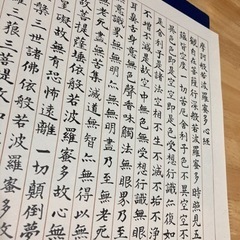 摩訶般若波羅蜜多心経
観自在菩薩行深般若波羅蜜多時照見五
蘊皆空度一切苦厄舎利子色不異空空不
異色色即是空空即是色受想行識亦復如
是舎利子是諸法空相不生不滅不垢不浄
不増不減是故空中無色無受想行識無眼
耳鼻舌身意無色聲香味觸法無眼界乃至
無意識界無無明亦無無明盡乃至無老死
無老死盡無苦集滅道無智亦無得以無
故菩提薩埵依般若波羅蜜多故心無
罣礙故無有恐怖遠離一切顛倒夢
三世諸佛依般若波羅蜜多故
藐三菩